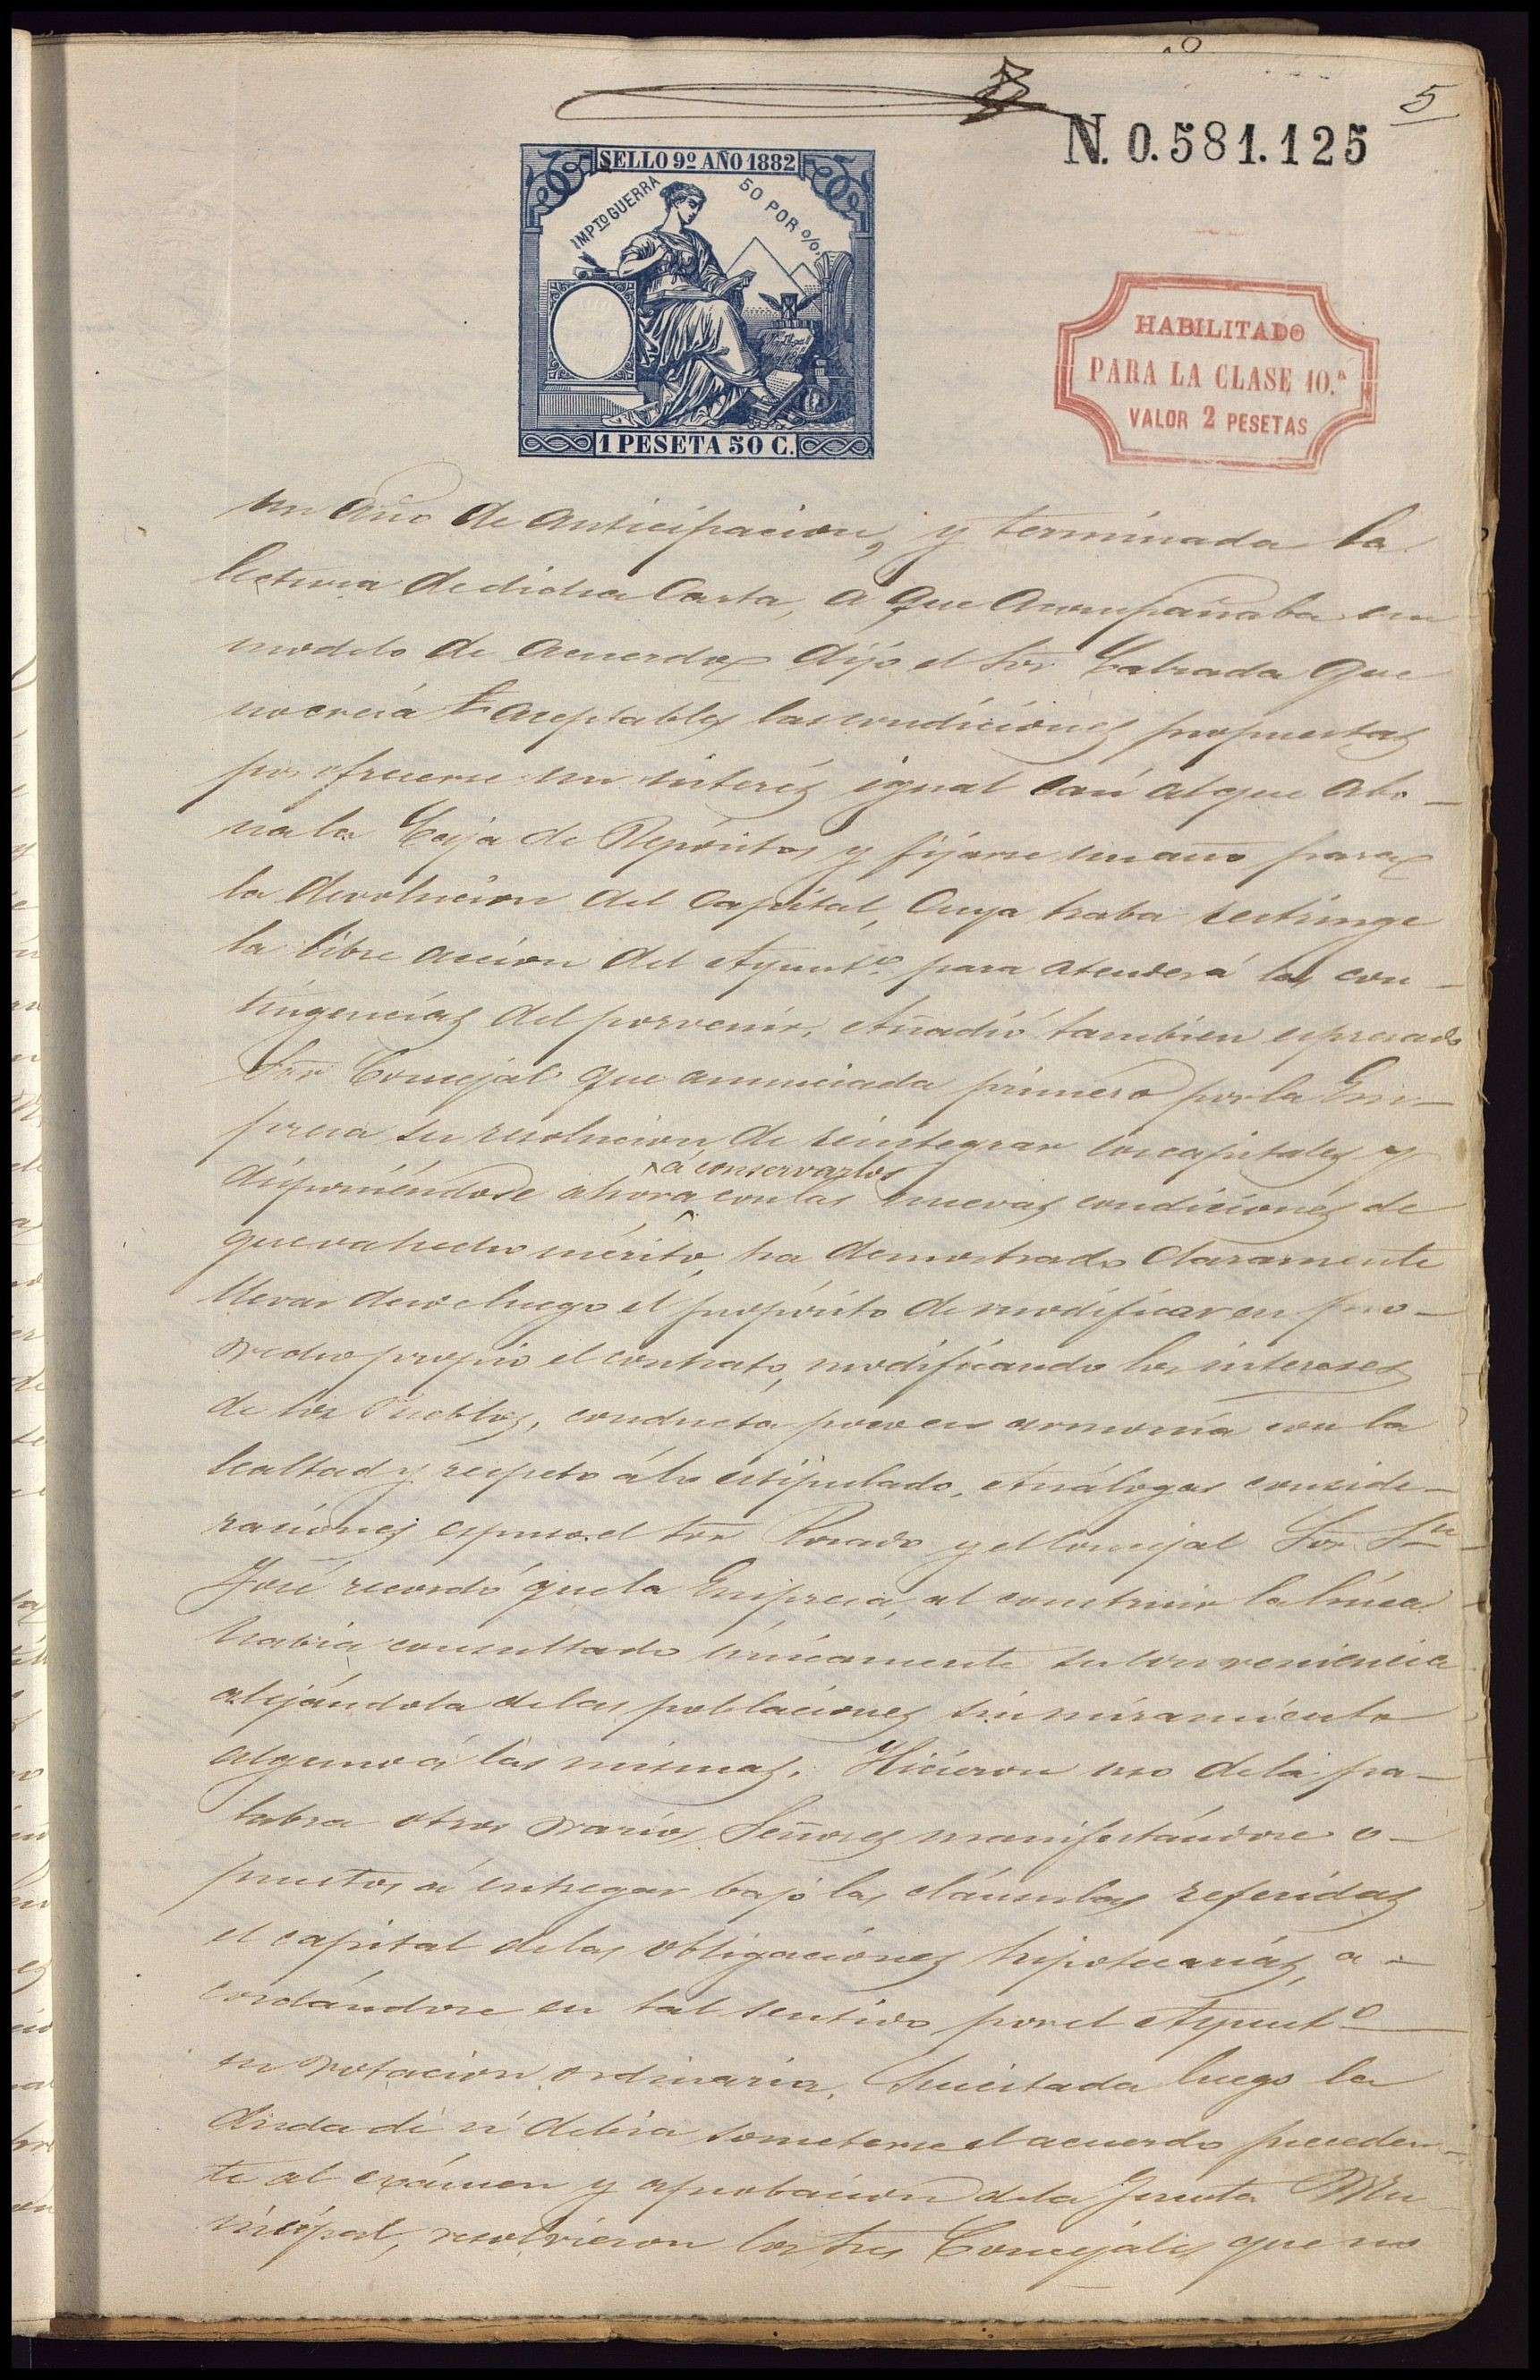 5
N. 0.581.125
SELLO 9º AÑO 1882
IMPTO GUERRA
50 POR %
1 PESETA 50 C.
HABILITADO
PARA LA CLASE 10.ª
VALOR 2 PESETAS
un año de anticipacion, y terminada la
lectura de dicha Carta, a que acompañaba un
modelo de acuerdo dijo el Sor. Labrada que
no creía aceptables las condiciones propuestas
por ofrecerse un interés igual casi al que abo-
na la Caja de Depósitos y fijarse un año para
la devolucion del capital, cuya traba restringe
la libre accion del Ayuntº para atender á las con-
tingencias del porvenir. Añadió tambien espresado
Sor Concejal que anunciada primero por la Em-
presa su resolucion de reintegrar los capitales y
á conservarlos
disponiéndose ahora con las nuevas condiciones de
que va hecho mérito, ha demostrado claramente
llevar desde luego el propósito de modificar en pro-
vecho propio el contrato, modificando los intereses
de los Pueblos, conducta poco en armonía con la
lealtad y respeto á lo estipulado. Análogas conside-
raciones espuso el Sor Rosado y el Concejal Sor Sn
José recordó que la Empresa, al construir la línea
habia consultado únicamente su conveniencia
alejándola de las poblaciones sin miramiento
alguno á las mismas. Hicieron uso de la pa-
labra otros varios Señores manifestándose o-
puestos á entregar bajo las cláusulas referidas
el capital de las obligaciones hipotecarias, a-
cordándose en tal sentido por el Ayuntº
en votacion ordinaria. Suscitada luego la
duda de si debia someterse el acuerdo preceden-
te al exámen y aprobacion de la Junta Mu-
nicipal, resolvieron los tres Concejales que no